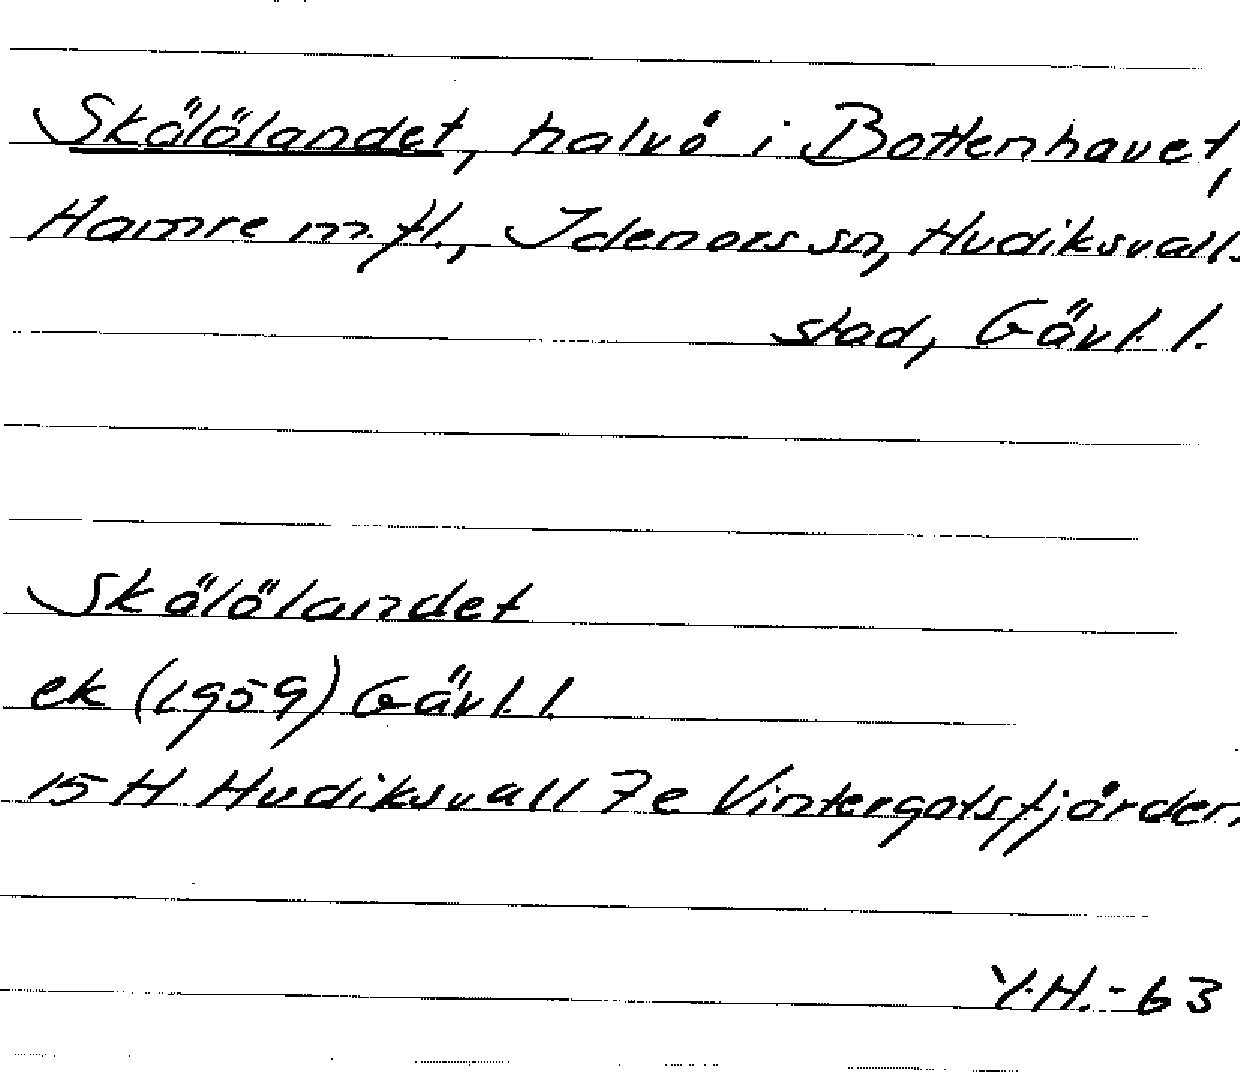 Skälölandet, halvö i Bottenhavet,
Hamre m.fl., Idenors sn, Hudiksvalls
stad, Gävl. l.
Skälölandet
ek (1959) Gävl. l.
15 H Hudiksvall 7e Vintergatsfjärden
Y.H.-63